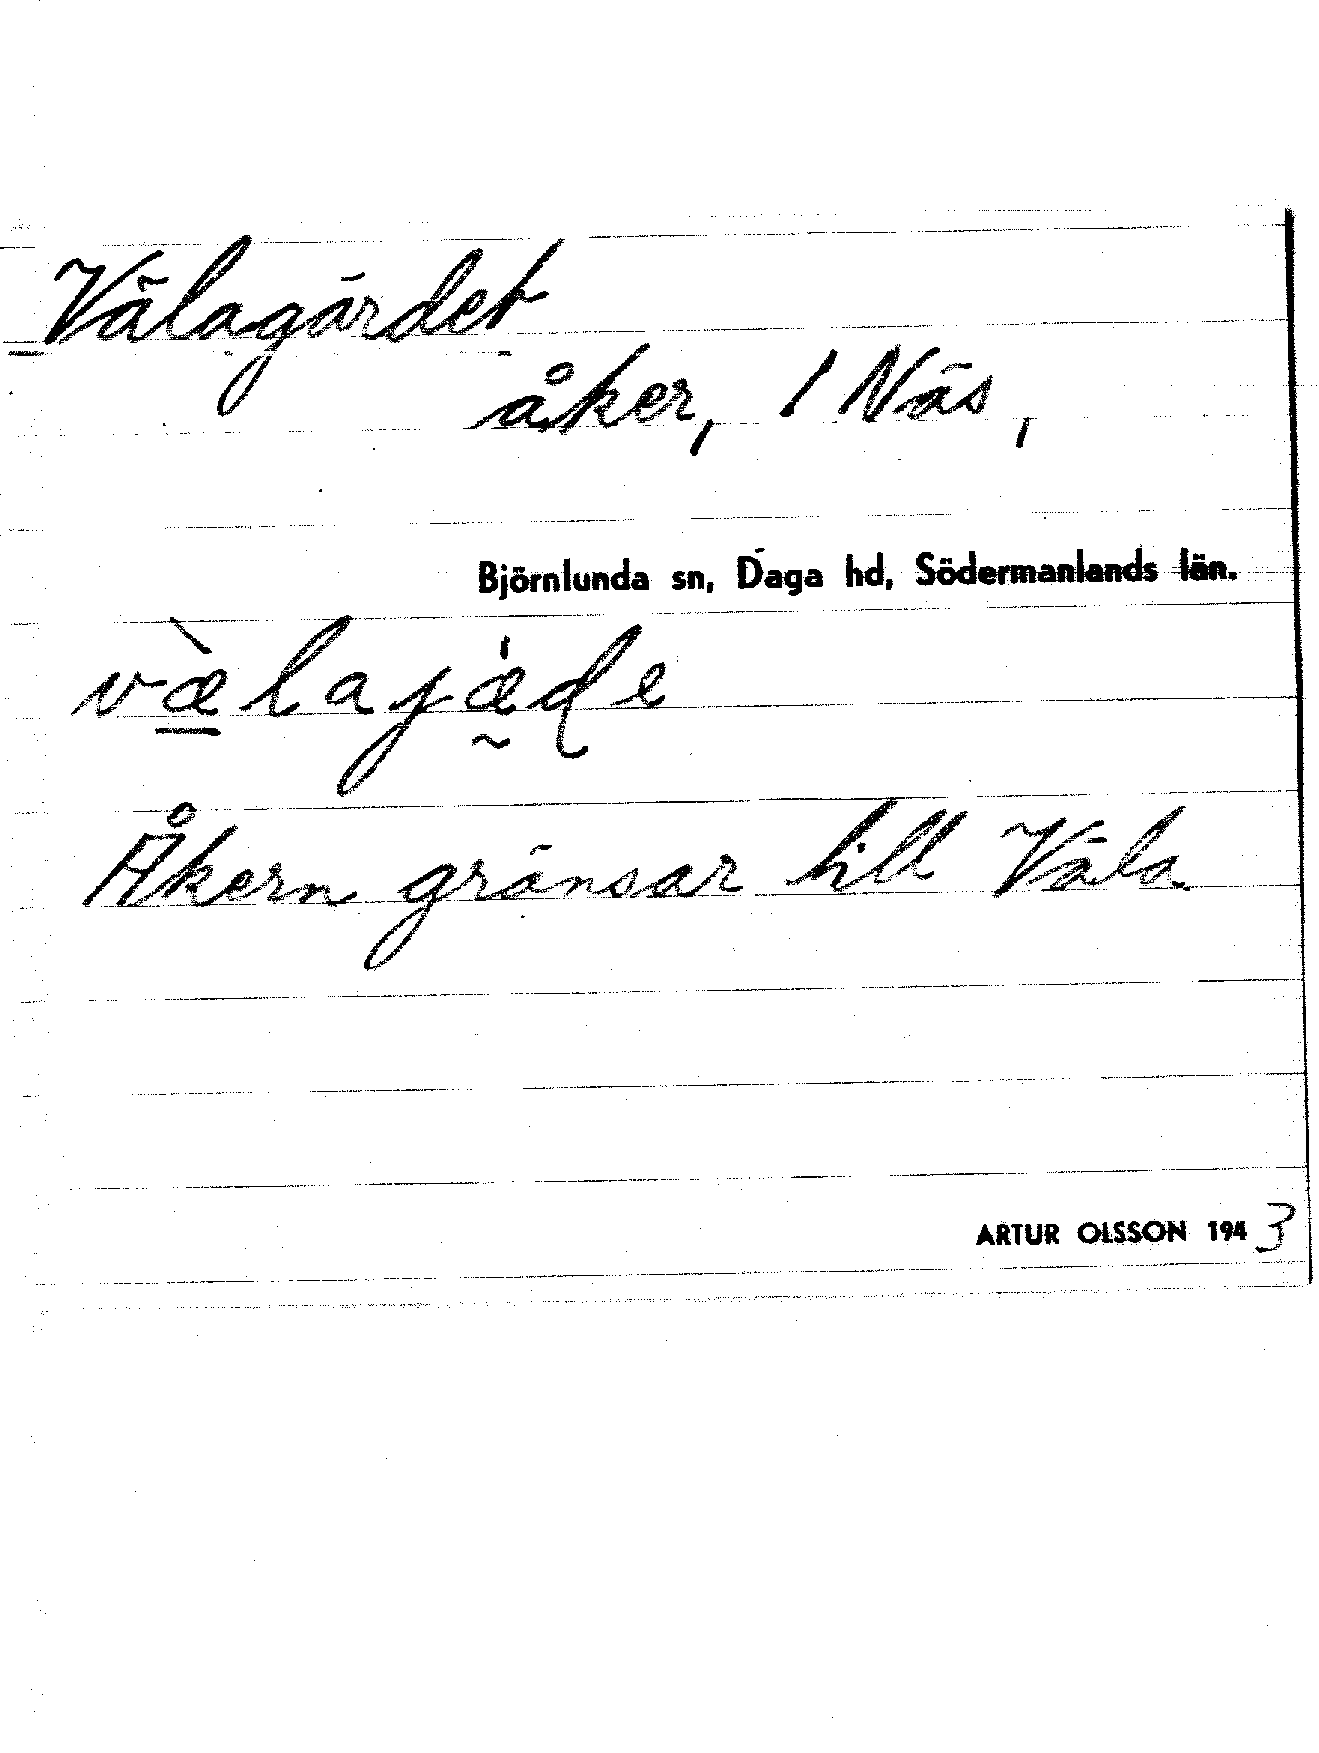 Välagärdet
åker, 1 Näs,
Björnlunda sn, Daga hd, Södermanlands län.
væ̀lajæ̀de
Åkern gränsar till Väla
ARTUR OLSSON 1943